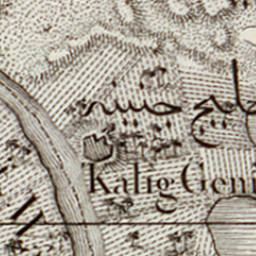 خليج جنينه
Kalig Geni